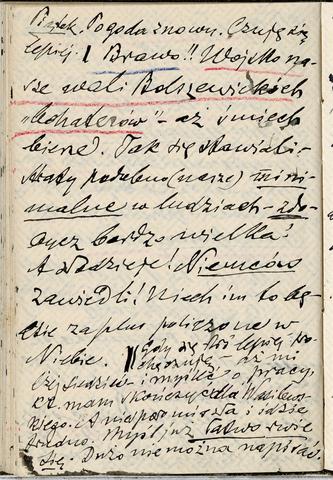 Piątek. Pogoda znowu. Czuję się
lepiej. Brawo!! Wojsko na-
sze wali Bolszewickich
"bohaterów" – aż śmiech
bierze). Tak się stawiali –
Straty podobno (nasze) mini-
malne w ludziach – zdo-
bycz bardzo wielka!
A Nadzieje! Niemców
zawiedli! Niech im to bę-
dzie za plus policzone w
Niebie. Gdy się dziś lepiej po-
czuję – aż mi
lżej i myślę o pracy,
kt. mam skończyć dla
A niesporo mi trwa i idzie
trudno. Myśl już łatwo rwie
się. Dużo nie można napisać.